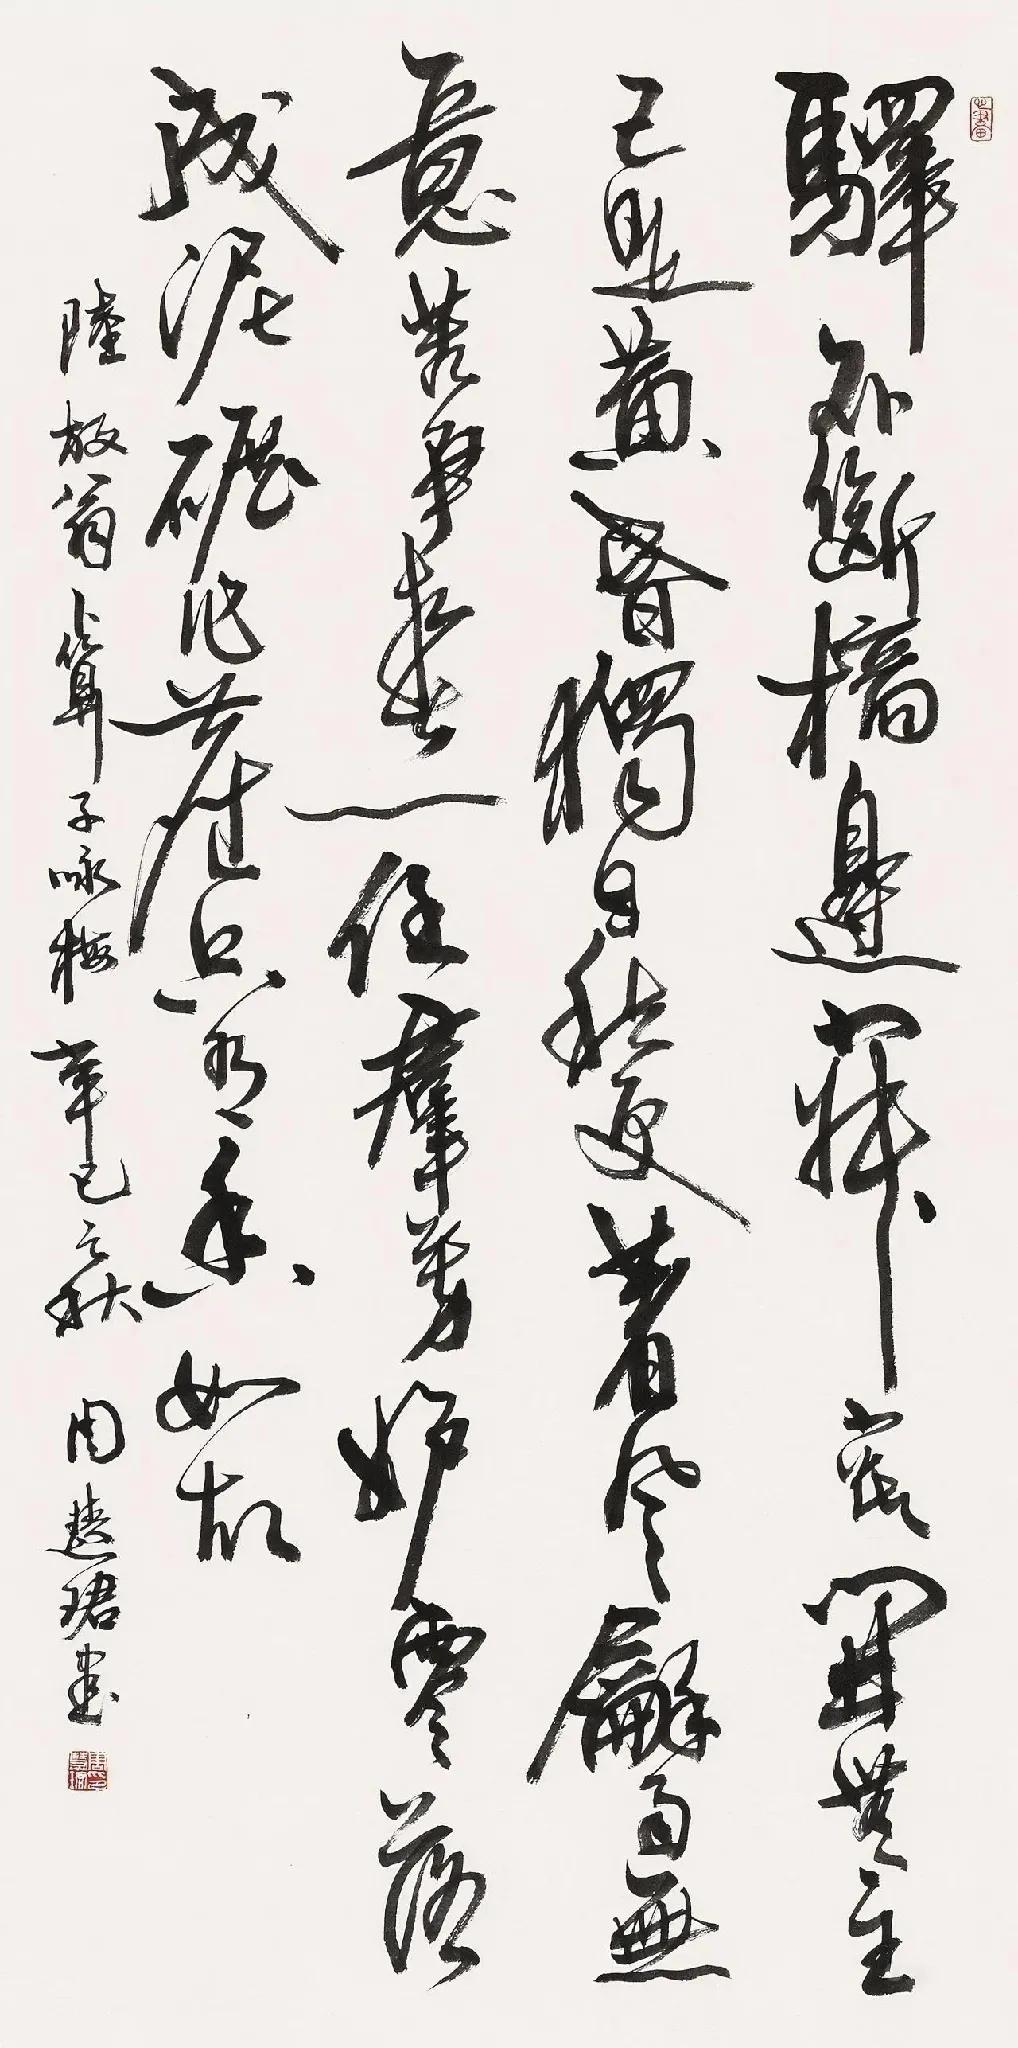 驛外斷橋邊寂寞開無主
已是黃昏獨自愁更著風龢雨無
意苦爭春一任羣芳妒零落
成泥碾作塵只有香如故
陸放翁卜算子咏梅 辛巳之秋 周慧珺書